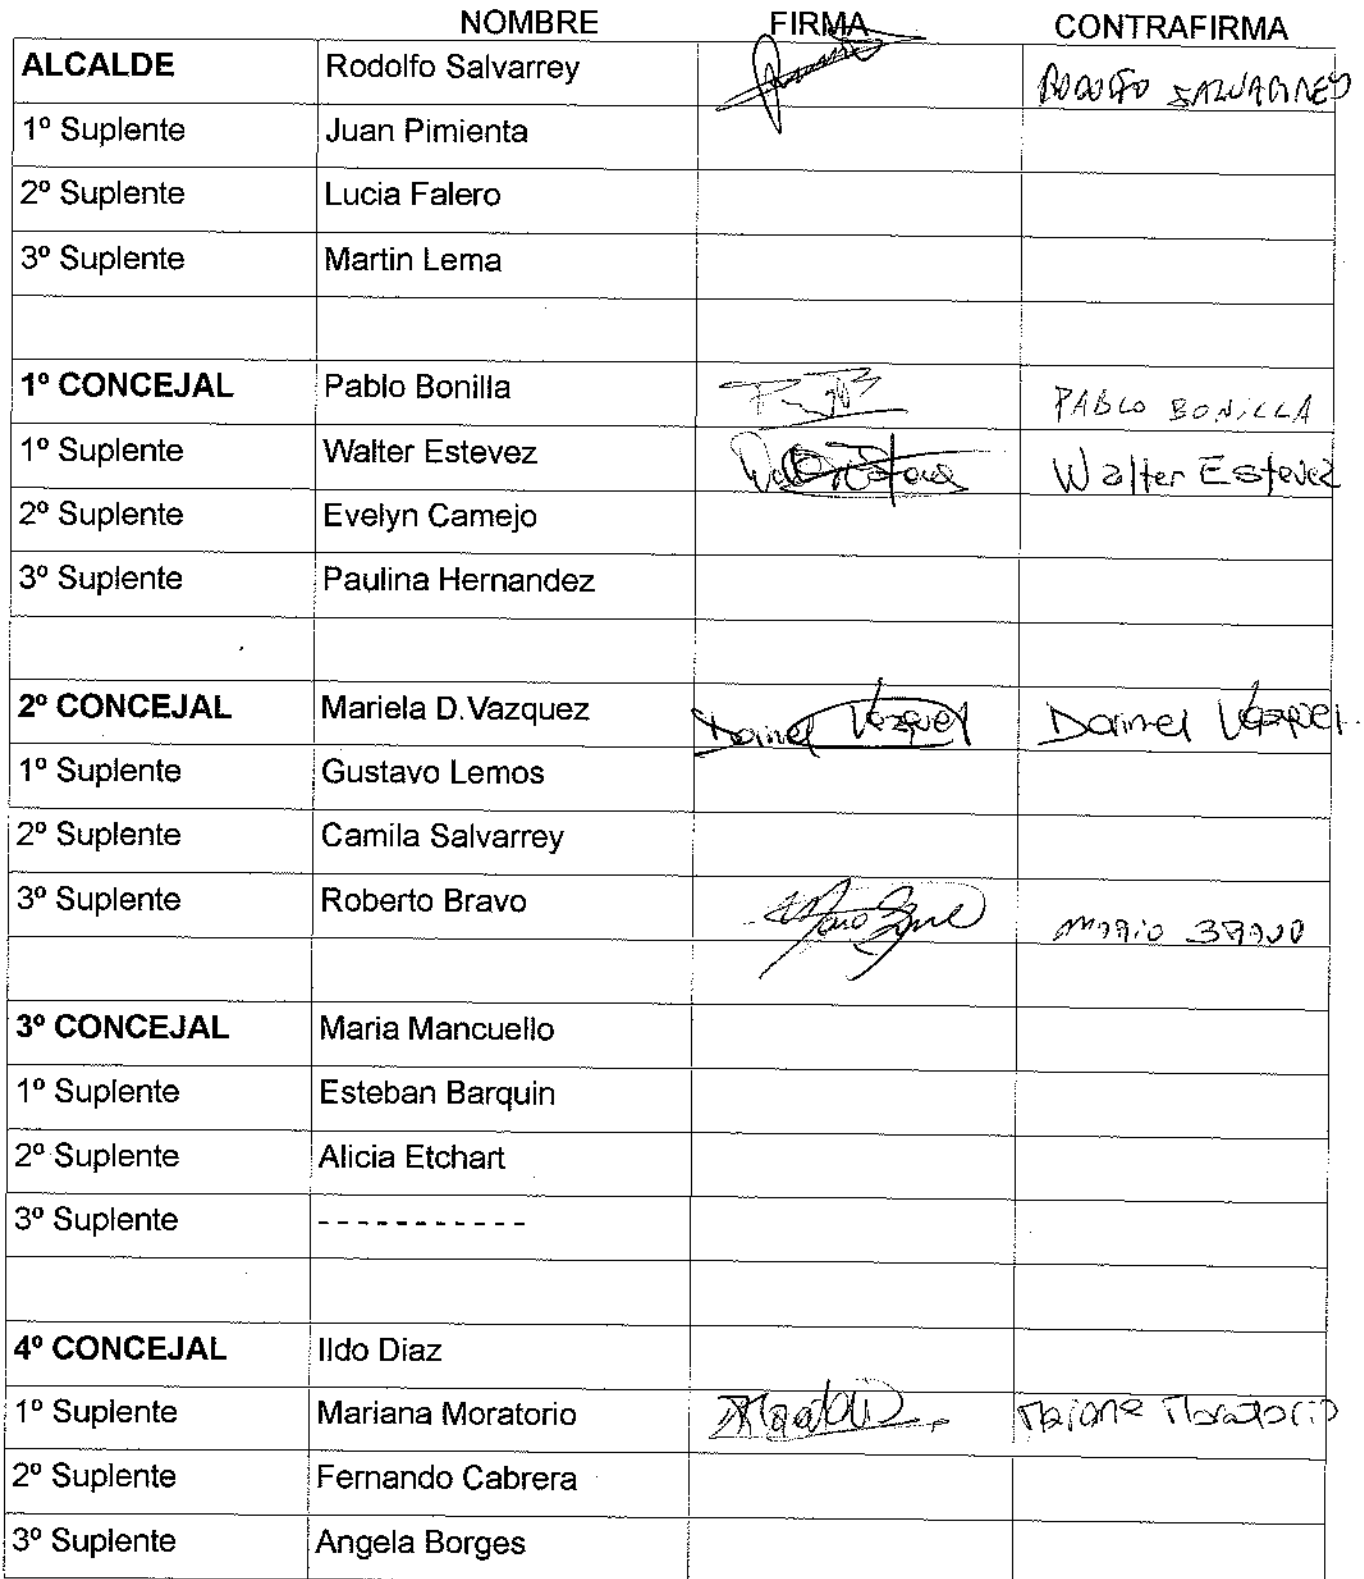 NOMBRE FIRMA CONTRAFIRMA
ALCALDE Rodolfo Salvarrey RODOLFO SALVARREY
1º Suplente Juan Pimienta
2º Suplente Lucia Falero
3º Suplente Martin Lema
1º CONCEJAL Pablo Bonilla PABLO BONILLA
1º Suplente Walter Estevez Walter Estevez
2º Suplente Evelyn Camejo
3º Suplente Paulina Hernandez
2º CONCEJAL Mariela D.Vazquez Darinel Vazquez Darinel Vazquez.
1º Suplente Gustavo Lemos
2º Suplente Camila Salvarrey
3º Suplente Roberto Bravo MARIO BRAVO
3º CONCEJAL Maria Mancuello
1º Suplente Esteban Barquin
2º Suplente Alicia Etchart
3º Suplente - - - - - - - - - - -
4º CONCEJAL Ildo Diaz
1º Suplente Mariana Moratorio Mariana Moratorio
2º Suplente Fernando Cabrera
3º Suplente Angela Borges